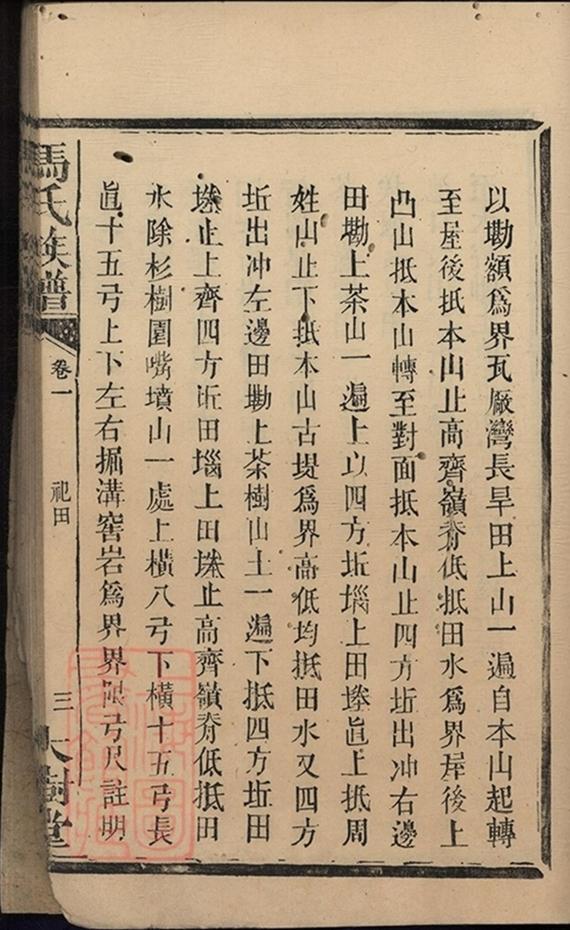 以墈額爲界瓦厰灣長旱田上山一遍自本山起轉
至屋後抵本山止高齊嶺脊低抵田水爲界屋後上
凸山抵本山轉至對面抵本山止四方坵出冲右邊
田墈上茶山一遍上以四方坵堖上田塖眞上抵周
姓山止下抵本山古堘爲界高低均抵田水又四方
坵出冲左邊田墈上茶樹山土一遍下抵四方坵田
塖止上齊四方坵田堖上田塖止高齊嶺脊低抵田
水除杉樹園嘴墳山一處上橫八弓下橫十五弓長
眞十五弓上下左右掘溝窖岩爲界界限弓尺註明
馬氏族譜
卷一
祀田
三
大樹堂